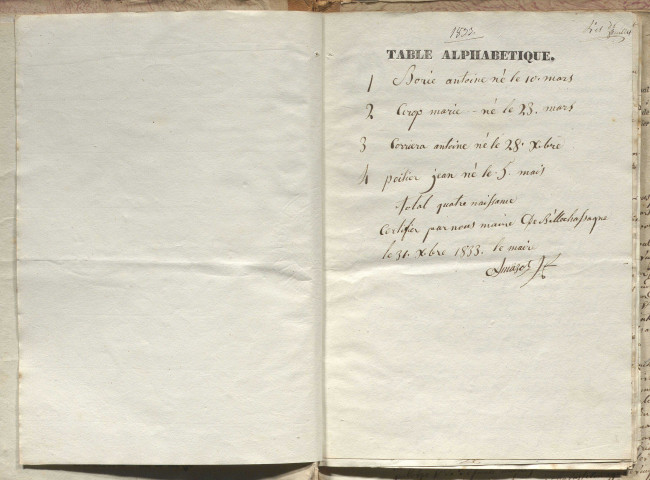 1833.
TABLE ALPHABETIQUE.
1 Borie antoine né le 10. mars
2 Crop marie - né le 23. mars
3 antoine né le 28. Xbre
4 jean né le 5. mais
total quatre naissance
Certifier par nous maire De
le 31. Xbre 1833. le maire